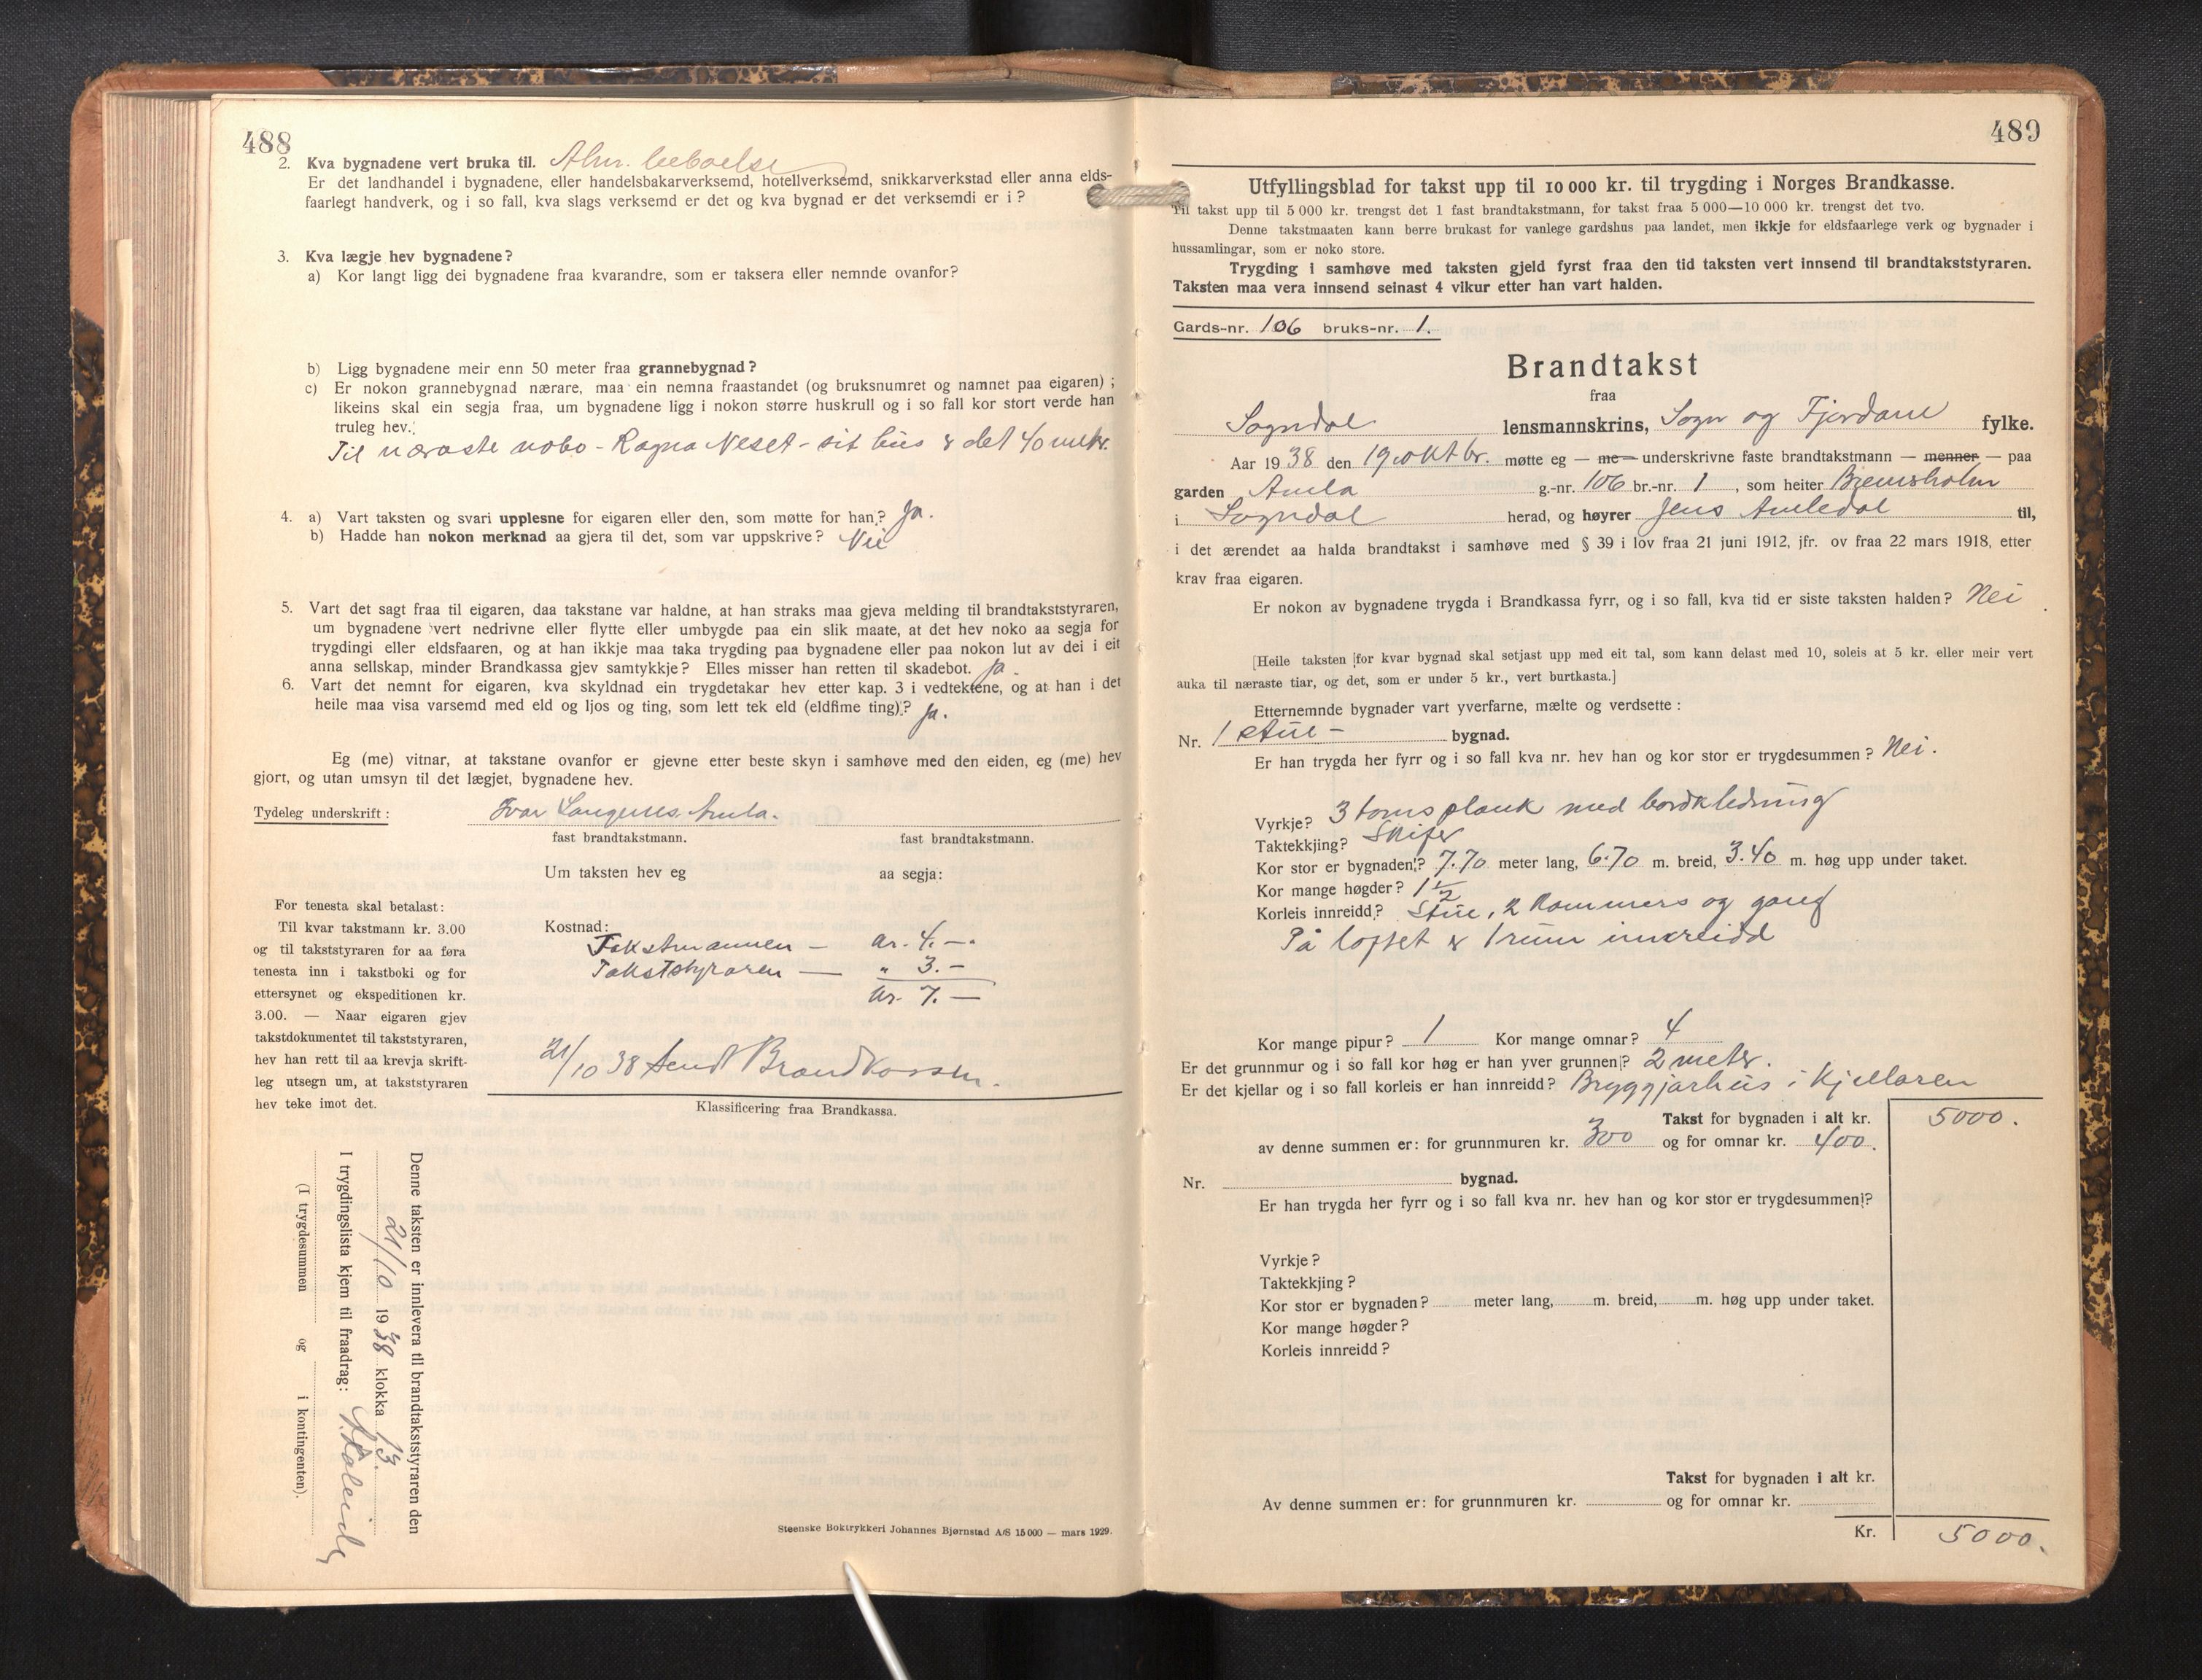 488
2. Kva bygnadene vert bruka til. Alm. beboelse
Er det landhandel i bygnadene, eller handelsbakarverksemd, hotellverksemd, snikkarverkstad eller anna elds-
faarlegt handverk, og i so fall, kva slags verksemd er det og kva bygnad er det verksemdi er i ?
3. Kva lægje hev bygnadene?
a) Kor langt ligg dei bygnadene fraa kvarandre, som er taksera eller nemnde ovanfor?
b) Ligg bygnadene meir enn 50 meter fraa grannebygnad?
c) Er nokon grannebygnad nærare, maa ein nemna fraastandet (og bruksnumret og namnet paa eigaren) ;
likeins skal ein segja fraa, um bygnadene ligg i nokon større huskrull og i so fall kor stort verde han
truleg hev.
Til næraste nobo - Ragna Neset - sit hus er det 40 metr.
4. a) Vart taksten og svari upplesne for eigaren eller den, som møtte for han? Ja.
b) Hadde han nokon merknad aa gjera til det, som var uppskrive? Nei
5. Vart det sagt fraa til eigaren, daa takstane var haldne, at han straks maa gjeva melding til brandtakststyraren,
um bygnadene vert nedrivne eller flytte eller umbygde paa ein slik maate, at det hev noko aa segja for
trygdingi eller eldsfaaren, og at han ikkje maa taka trygding paa bygnadene eller paa nokon lut av dei i eit
anna sellskap, minder Brandkassa gjev samtykkje? Elles misser han retten til skadebot. Ja.
6. Vart det nemnt for eigaren, kva skyldnad ein trygdetakar hev etter kap. 3 i vedtektene, og at han i det
heile maa visa varsemd med eld og ljos og ting, som lett tek eld (eldfime ting)? Ja.
Eg (me) vitnar, at takstane ovanfor er gjevne etter beste skyn i samhøve med den eiden, eg (me) hev
gjort, og utan umsyn til det lægjet, bygnadene hev.
Tydeleg underskrift: Ivar Langenes Amla.
fast brandtakstmann. fast brandtakstmann.
Um taksten hev eg aa segja:
For tenesta skal betalast:
Til kvar takstmann kr. 3.00
og til takststyraren for aa føra
tenesta inn i takstboki og for
ettersynet og ekspeditionen kr.
3.00. — Naar eigaren gjev
takstdokumentet til takststyraren,
hev han rett til aa krevja skrift-
leg utsegn um, at takststyraren
hev teke imot det.
Kostnad:
Takstmannen — kr. 4.—
Takststyraren — " 3.—
kr. 7.—
21/10 38 Sendt Brandkassen.
Klassificering fraa Brandkassa.
Denne taksten er innlevera til brandtakststyraren den
21/10 1938 klokka 13.
I trygdingslista kjem til fraadrag:
(I trygdesummen og i kontingenten).
Steenske Boktrykkeri Johannes Bjørnstad A/S 15000 — mars 1929.
489
Utfyllingsblad for takst upp til 10 000 kr. til trygding i Norges Brandkasse.
Til takst upp til 5 000 kr. trengst det 1 fast brandtakstmann, for takst fraa 5 000—10 000 kr. trengst det tvo.
Denne takstmaaten kann berre brukast for vanlege gardshus paa landet, men ikkje for eldsfaarlege verk og bygnader i
hussamlingar, som er noko store.
Trygding i samhøve med taksten gjeld fyrst fraa den tid taksten vert innsend til brandtakststyraren.
Taksten maa vera innsend seinast 4 vikur etter han vart halden.
Gards-nr. 106 bruks-nr. 1.
Brandtakst
fraa
Sogndal lensmannskrins, Sogn og Fjordane fylke.
Aar 1938 den 19 oktbr. møtte eg — me — underskrivne faste brandtakstmann — menner — paa
garden Amla g.-nr. 106 br.-nr. 1 , som heiter Bremsholm
i Sogndal herad, og høyrer Jens Amledal til,
i det ærendet aa halda brandtakst i samhøve med § 39 i lov fraa 21 juni 1912, jfr. ov fraa 22 mars 1918, etter
krav fraa eigaren.
Er nokon av bygnadene trygda i Brandkassa fyrr, og i so fall, kva tid er siste taksten halden? Nei
[Heile taksten for kvar bygnad skal setjast upp med eit tal, som kann delast med 10, soleis at 5 kr. eller meir vert
auka til næraste tiar, og det, som er under 5 kr., vert burtkasta.]
Etternemnde bygnader vart yverfarne, mælte og verdsette :
Nr. 1 stue - bygnad.
Er han trygda her fyrr og i so fall kva nr. hev han og kor stor er trygdesummen? Nei.
Vyrkje? 3 toms plank med bordkledning
Taktekkjing? Skifer
Kor stor er bygnaden? 7.70 meter lang, 6.70 m. breid, 3.40 m. høg upp under taket.
Kor mange høgder? 1 1/2
Korleis innreidd? Stue, 2 kammers og gang
På loftet er 1 rum innreidd
Kor mange pipur? 1 Kor mange omnar? 4
Er det grunnmur og i so fall kor høg er han yver grunnen? 2 meter.
Er det kjellar og i so fall korleis er han innreidd? Bryggjarhus i kjellaren
Takst for bygnaden i alt kr. 5000.
av denne summen er: for grunnmuren kr. 300 og for omnar kr. 400.
Nr. bygnad.
Er han trygda her fyrr og i so fall kva nr. hev han og kor stor er trygdesummen?
Vyrkje?
Taktekkjing?
Kor stor er bygnaden? meter lang, m. breid, m. høg upp under taket.
Kor mange høgder?
Korleis innreidd?
Takst for bygnaden i alt kr.
Av denne summen er: for grunnmuren kr. og for omnar kr.
Kr. 5000.